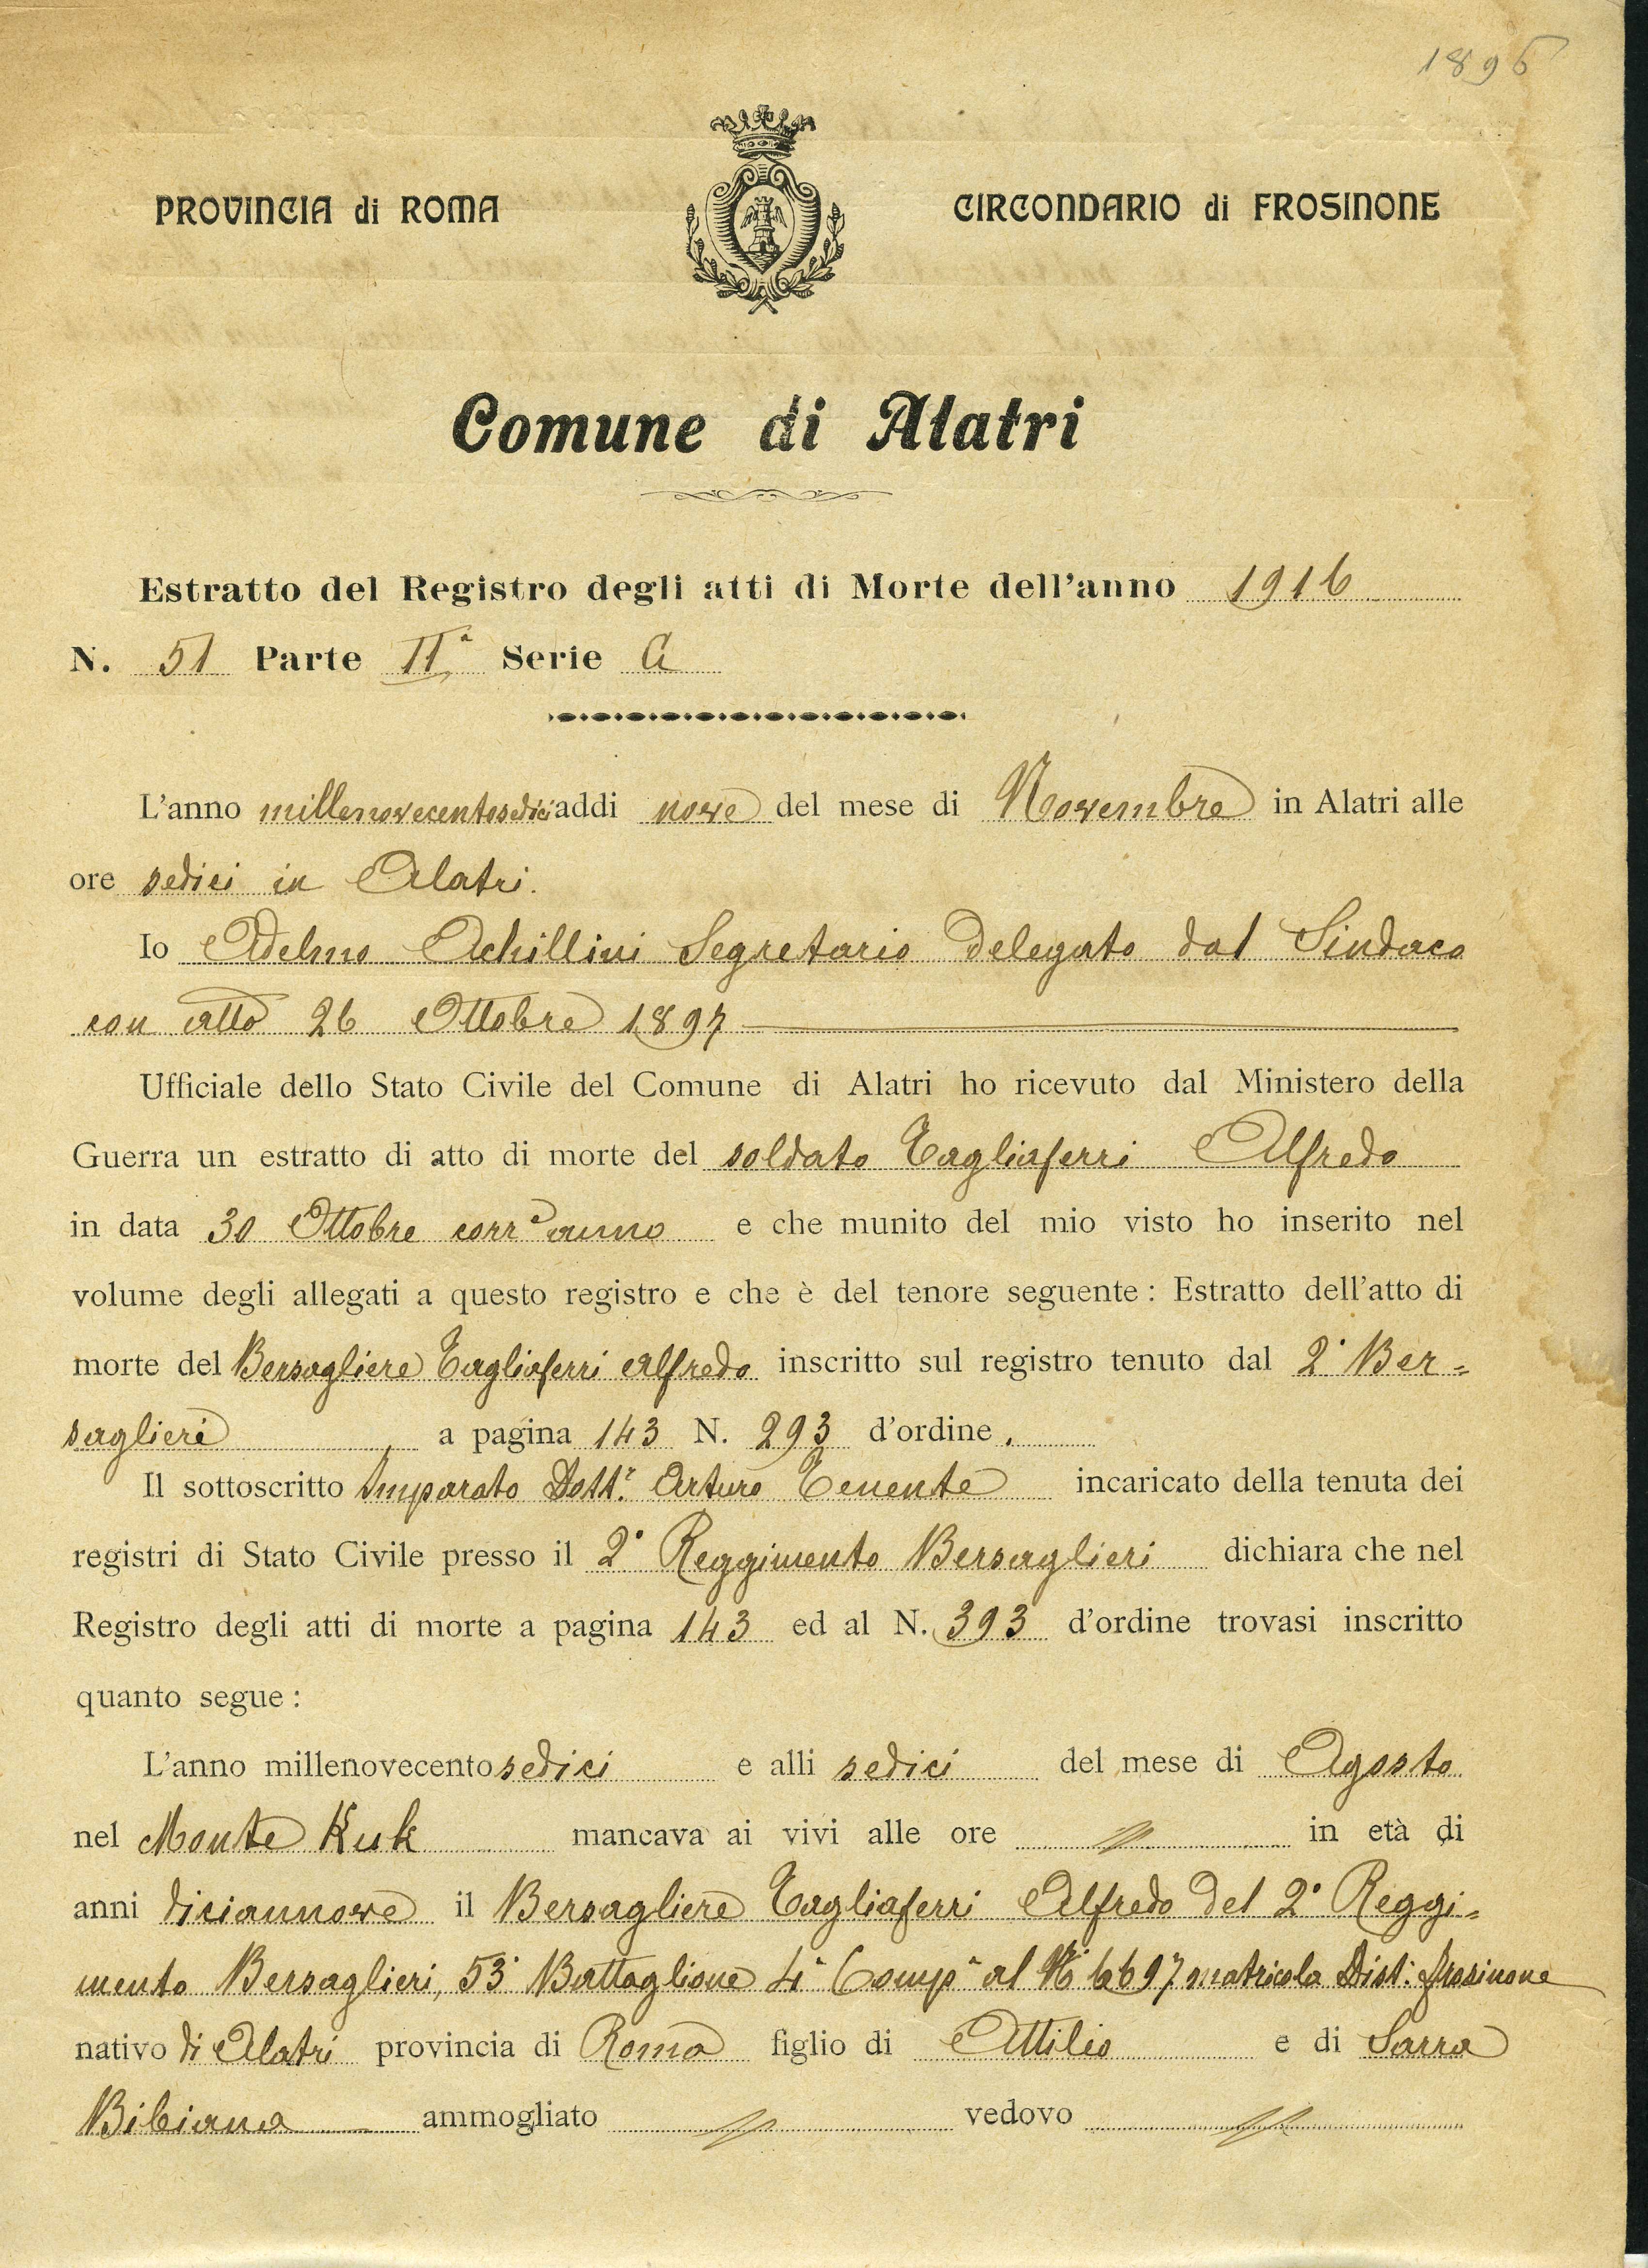 1896
PROVINCIA di ROMA
CIRCONDARIO di FROSINONE
Comune di Alatri
Estratto del Registro degli atti di Morte dell'anno 1916
N. 51 Parte IIª Serie A
L'anno millenovecentosedici addi nove del mese di Novembre in Alatri alle
ore sedici in Alatri.
Io Adelmo Achillini Segretario Delegato dal Sindaco
con atto 26 Ottobre 1897
Ufficiale dello Stato Civile del Comune di Alatri ho ricevuto dal Ministero della
Guerra un estratto di atto di morte del soldato Tagliaferri Alfredo
in data 30 Ottobre corrᵉ anno e che munito del mio visto ho inserito nel
volume degli allegati a questo registro e che è del tenore seguente : Estratto dell'atto di
morte del Bersagliere Tagliaferri Alfredo inscritto sul registro tenuto dal 2° Ber=
saglieri a pagina 143 N. 293 d'ordine .
Il sottoscritto Imparato Dottʳ. Arturo Tenente incaricato della tenuta dei
registri di Stato Civile presso il 2° Reggimento Bersaglieri dichiara che nel
Registro degli atti di morte a pagina 143 ed al N. 393 d'ordine trovasi inscritto
quanto segue :
L'anno millenovecento sedici e alli sedici del mese di Agosto
nel Monte Kuk mancava ai vivi alle ore // in età di
anni diciannove il Bersagliere Tagliaferri Alfredo del 2° Reggi=
mento Bersaglieri, 53° Battaglione 4ª Compª al N° 6697 matricola Dist: Frosinone
nativo di Alatri provincia di Roma figlio di Attilio e di Sarra
Bibiana ammogliato // vedovo //